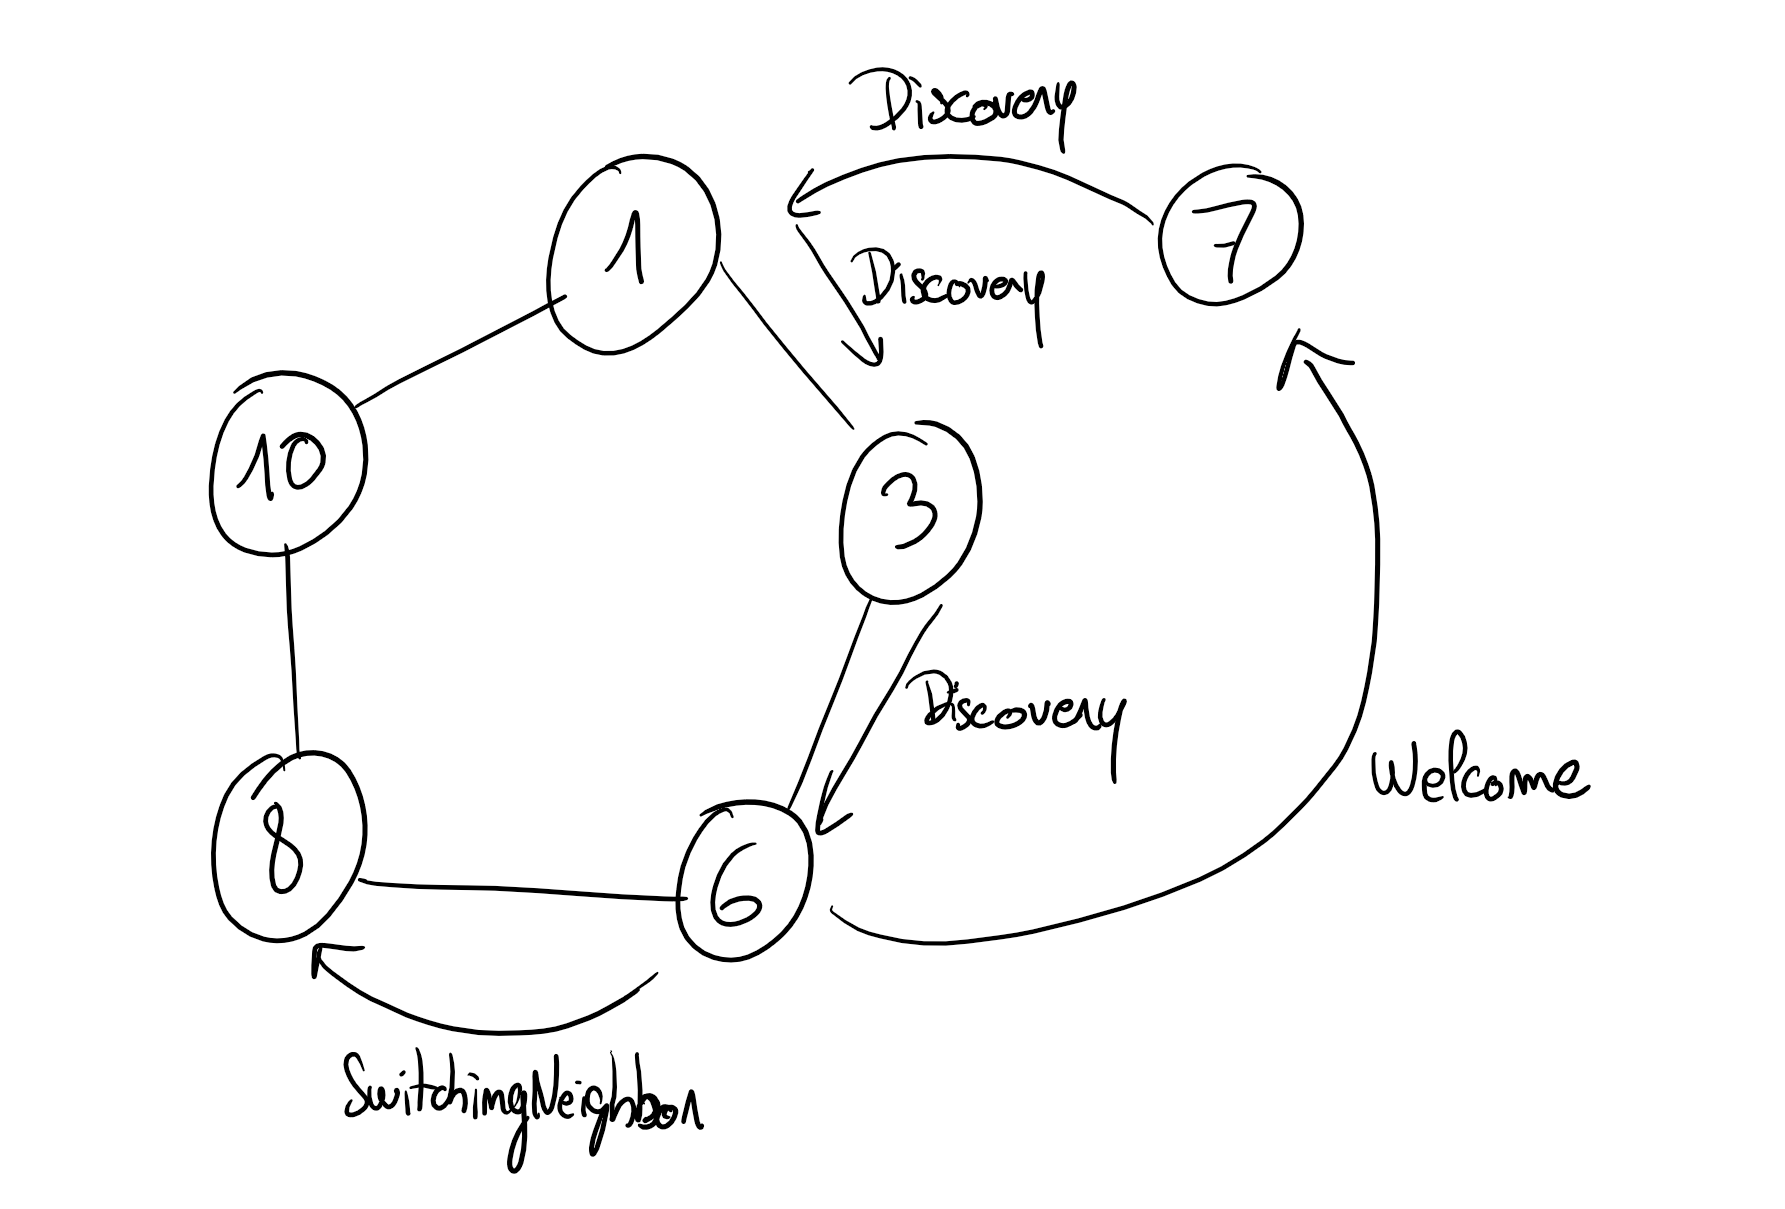 Discovery
1
7
Discovery
10
3
Discovery
Welcome
8
6
SwitchingNeighbor